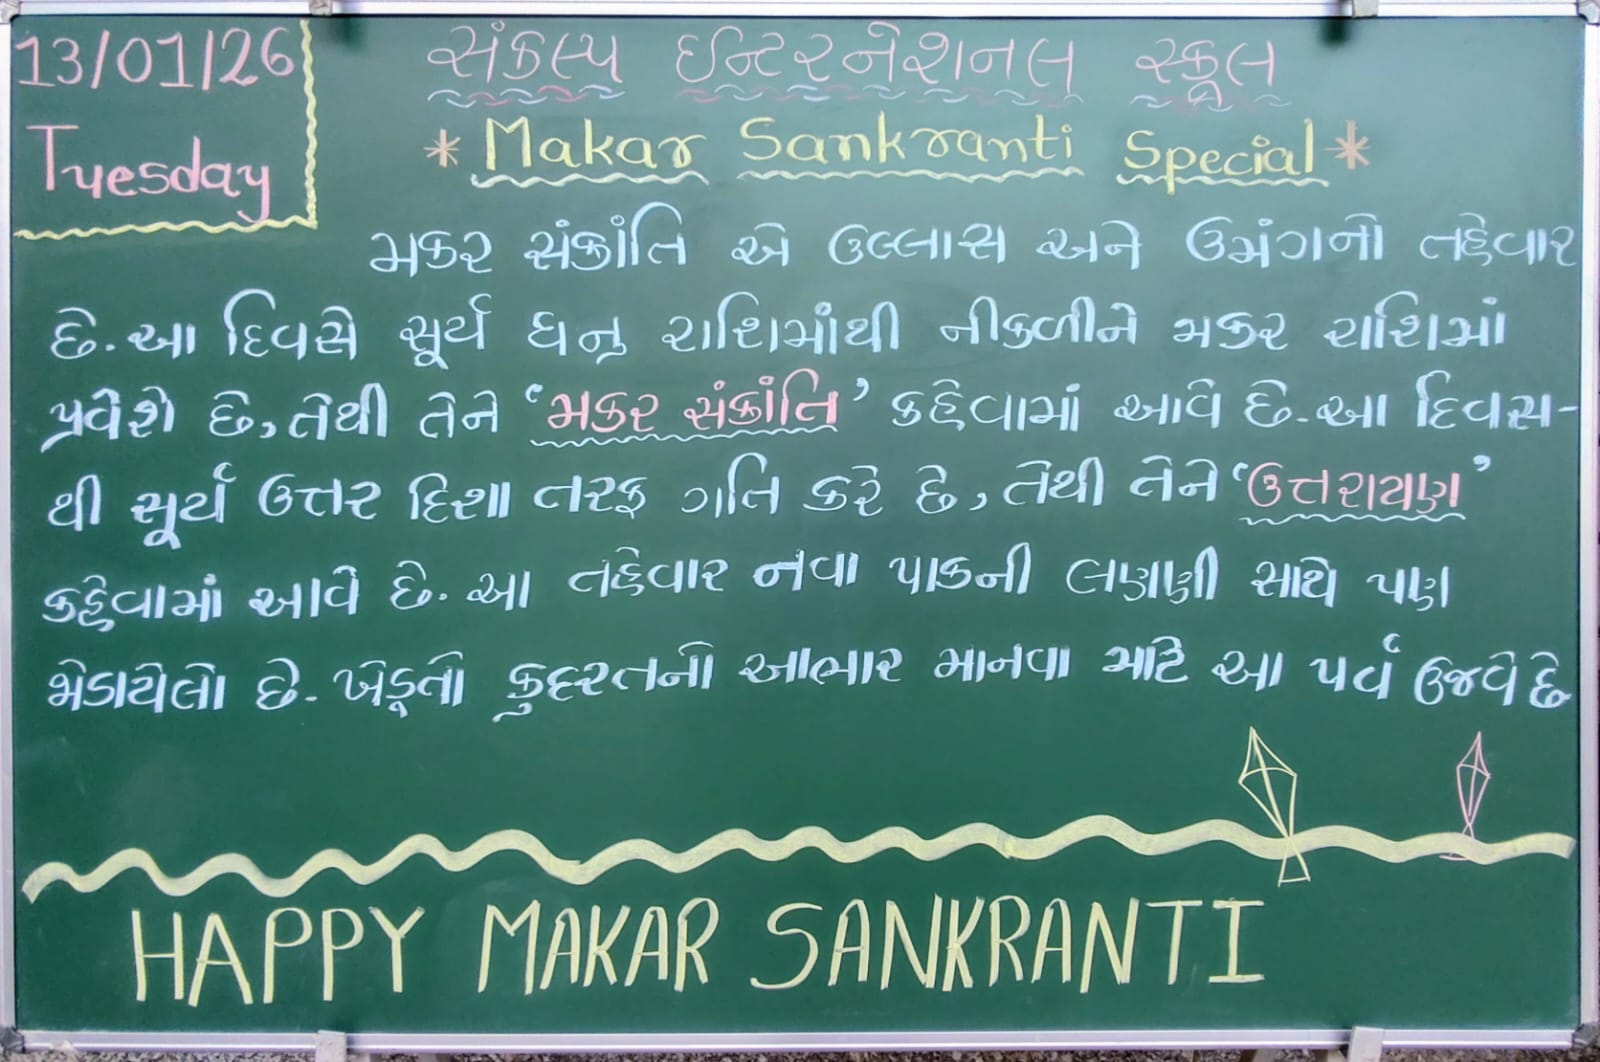 13/01/26
Tuesday
સંકલ્પ ઈન્ટરનેશનલ સ્કૂલ
* Makar Sankranti Special *
મકર સંક્રાંતિ એ ઉલ્લાસ અને ઉમંગનો તહેવાર
છે. આ દિવસે સૂર્ય ધનુ રાશિમાંથી નીકળીને મકર રાશિમાં
પ્રવેશે છે, તેથી તેને ‘મકર સંક્રાંતિ’ કહેવામાં આવે છે. આ દિવસ-
થી સૂર્ય ઉત્તર દિશા તરફ ગતિ કરે છે, તેથી તેને ‘ઉત્તરાયણ’
કહેવામાં આવે છે. આ તહેવાર નવા પાકની લણણી સાથે પણ
જોડાયેલો છે. ખેડૂતો કુદરતનો આભાર માનવા માટે આ પર્વ ઉજવે છે
HAPPY MAKAR SANKRANTI